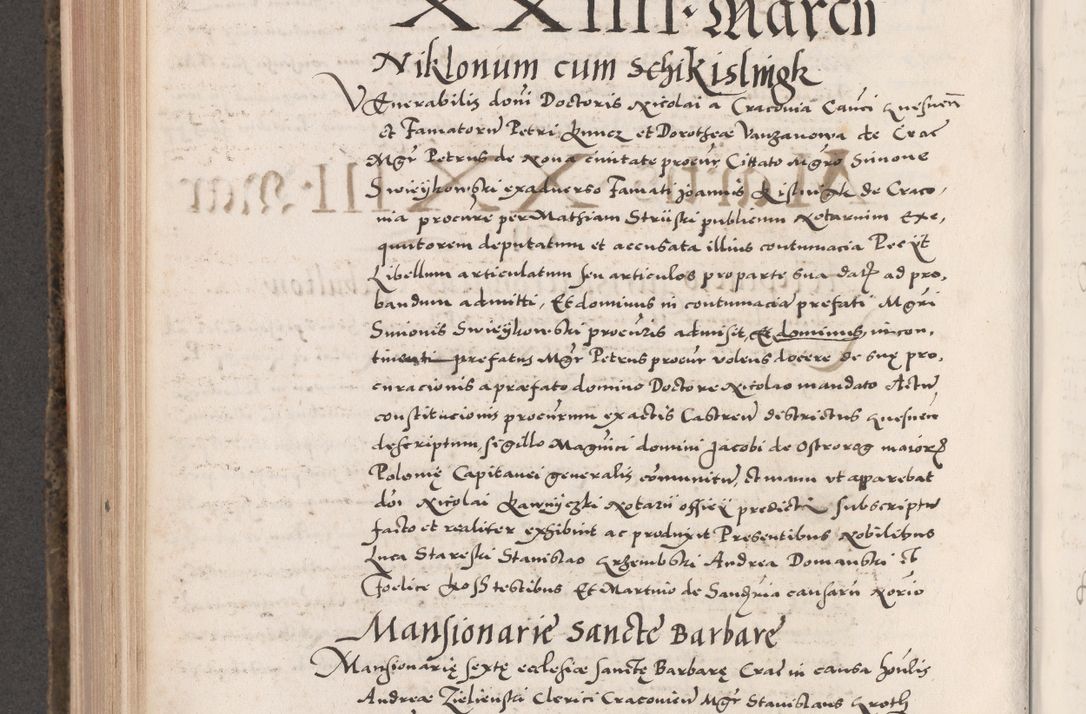 XXIIII. Marcii
Niklonum cum Schikislingk
Venerabilis domini Doctoris Nicolai a Cracovia Canci
et Famatorum Petri Kuncz et Dorotheae Vanzanowa de Crac
Mgr Petrus de Nova civitate procur Cittato Mgro Simone
Swieykowski ex adverso Famati Joannis Kislingk de Craco,
via procure per Mathiam Striiski publicum Notarium exe,
quutorem deputatum et accusata illius contumacia Fecit
Libellum articulatum seu articulos pro parte sua datos ad pro,
bandum admitti, Et dominus in contumacia prefati Mgri
Simonis Swieykowski procuris admisit, Et dominus in con,
tinenti prefatus Mgr Petrus procur volens docere de sue pro,
curacionis a praefato domino Doctore Nicolao mandato Actum
constitucionis procurum ex actis Castren districtus
descriptum, sigillo Magnici domini Jacobi de Ostrorog maioris
Polonię Capitanei generalis communitum, et manu ut apparebat
doi Nicolai Kawnyczki Notarii officii predicti subscriptum
facto et realiter exhibuit ac produxit Presentibus Nobilibus
Luca Stareski Stanislao Krzembski Andrea Domanski et
Foelice testibus Et Martino de causarum Norio
Mansionarie Sancte Barbarę
Mansionarię sextę ecclesiae sanctę Barbarę Crac in causa
Andreae Zielienski Clerici Cracovien Mgr Stanislaus Kroth